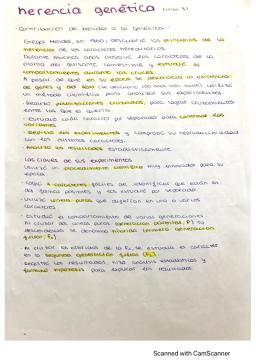 herencia genética (tema 3)
· Contribución de Mendel a la genética:
Gregor Mendel, en 1860, descubrió los principios de la
herencia de los caracteres hereditarios.
Durante muchos años estudió los caracteres de la
planta del guisante comestible y estudió su
comportamiento durante los cruces.
A pesar de que en su época se desconocía la existencia
de genes y del ADN
un método científico para analizar sus experimentos.
- Realizó polinizaciones cruzadas, para lograr cruzamientos
entre las que él quería.
- Estudió cada carácter por separado para controlar las
variables.
- Repitió los experimentos y comprobó su reproducibilidad
con los distintos caracteres.
- Analizó los resultados estadísticamente.
· Las claves de sus experimentos
Utilizó un procedimiento científico muy innovador para su
época.
- Cogió 7 caracteres fáciles de identificar que están en
dos formas posibles, y los estudió por separado.
- Utilizó líneas puras que diferían en uno o varios
caracteres.
- Estudió el comportamiento de varias generaciones.
Al cruzar dos líneas puras (generación parental, P) su
descendencia se denomina híbrida (primera generación
filial, F1)
- Al cruzar los híbridos de la F1, se estudia el carácter
en la segunda generación filial (F2)
- Registró los resultados, hizo análisis estadísticos y
formuló hipótesis para explicar los resultados.
Scanned with CamScanner